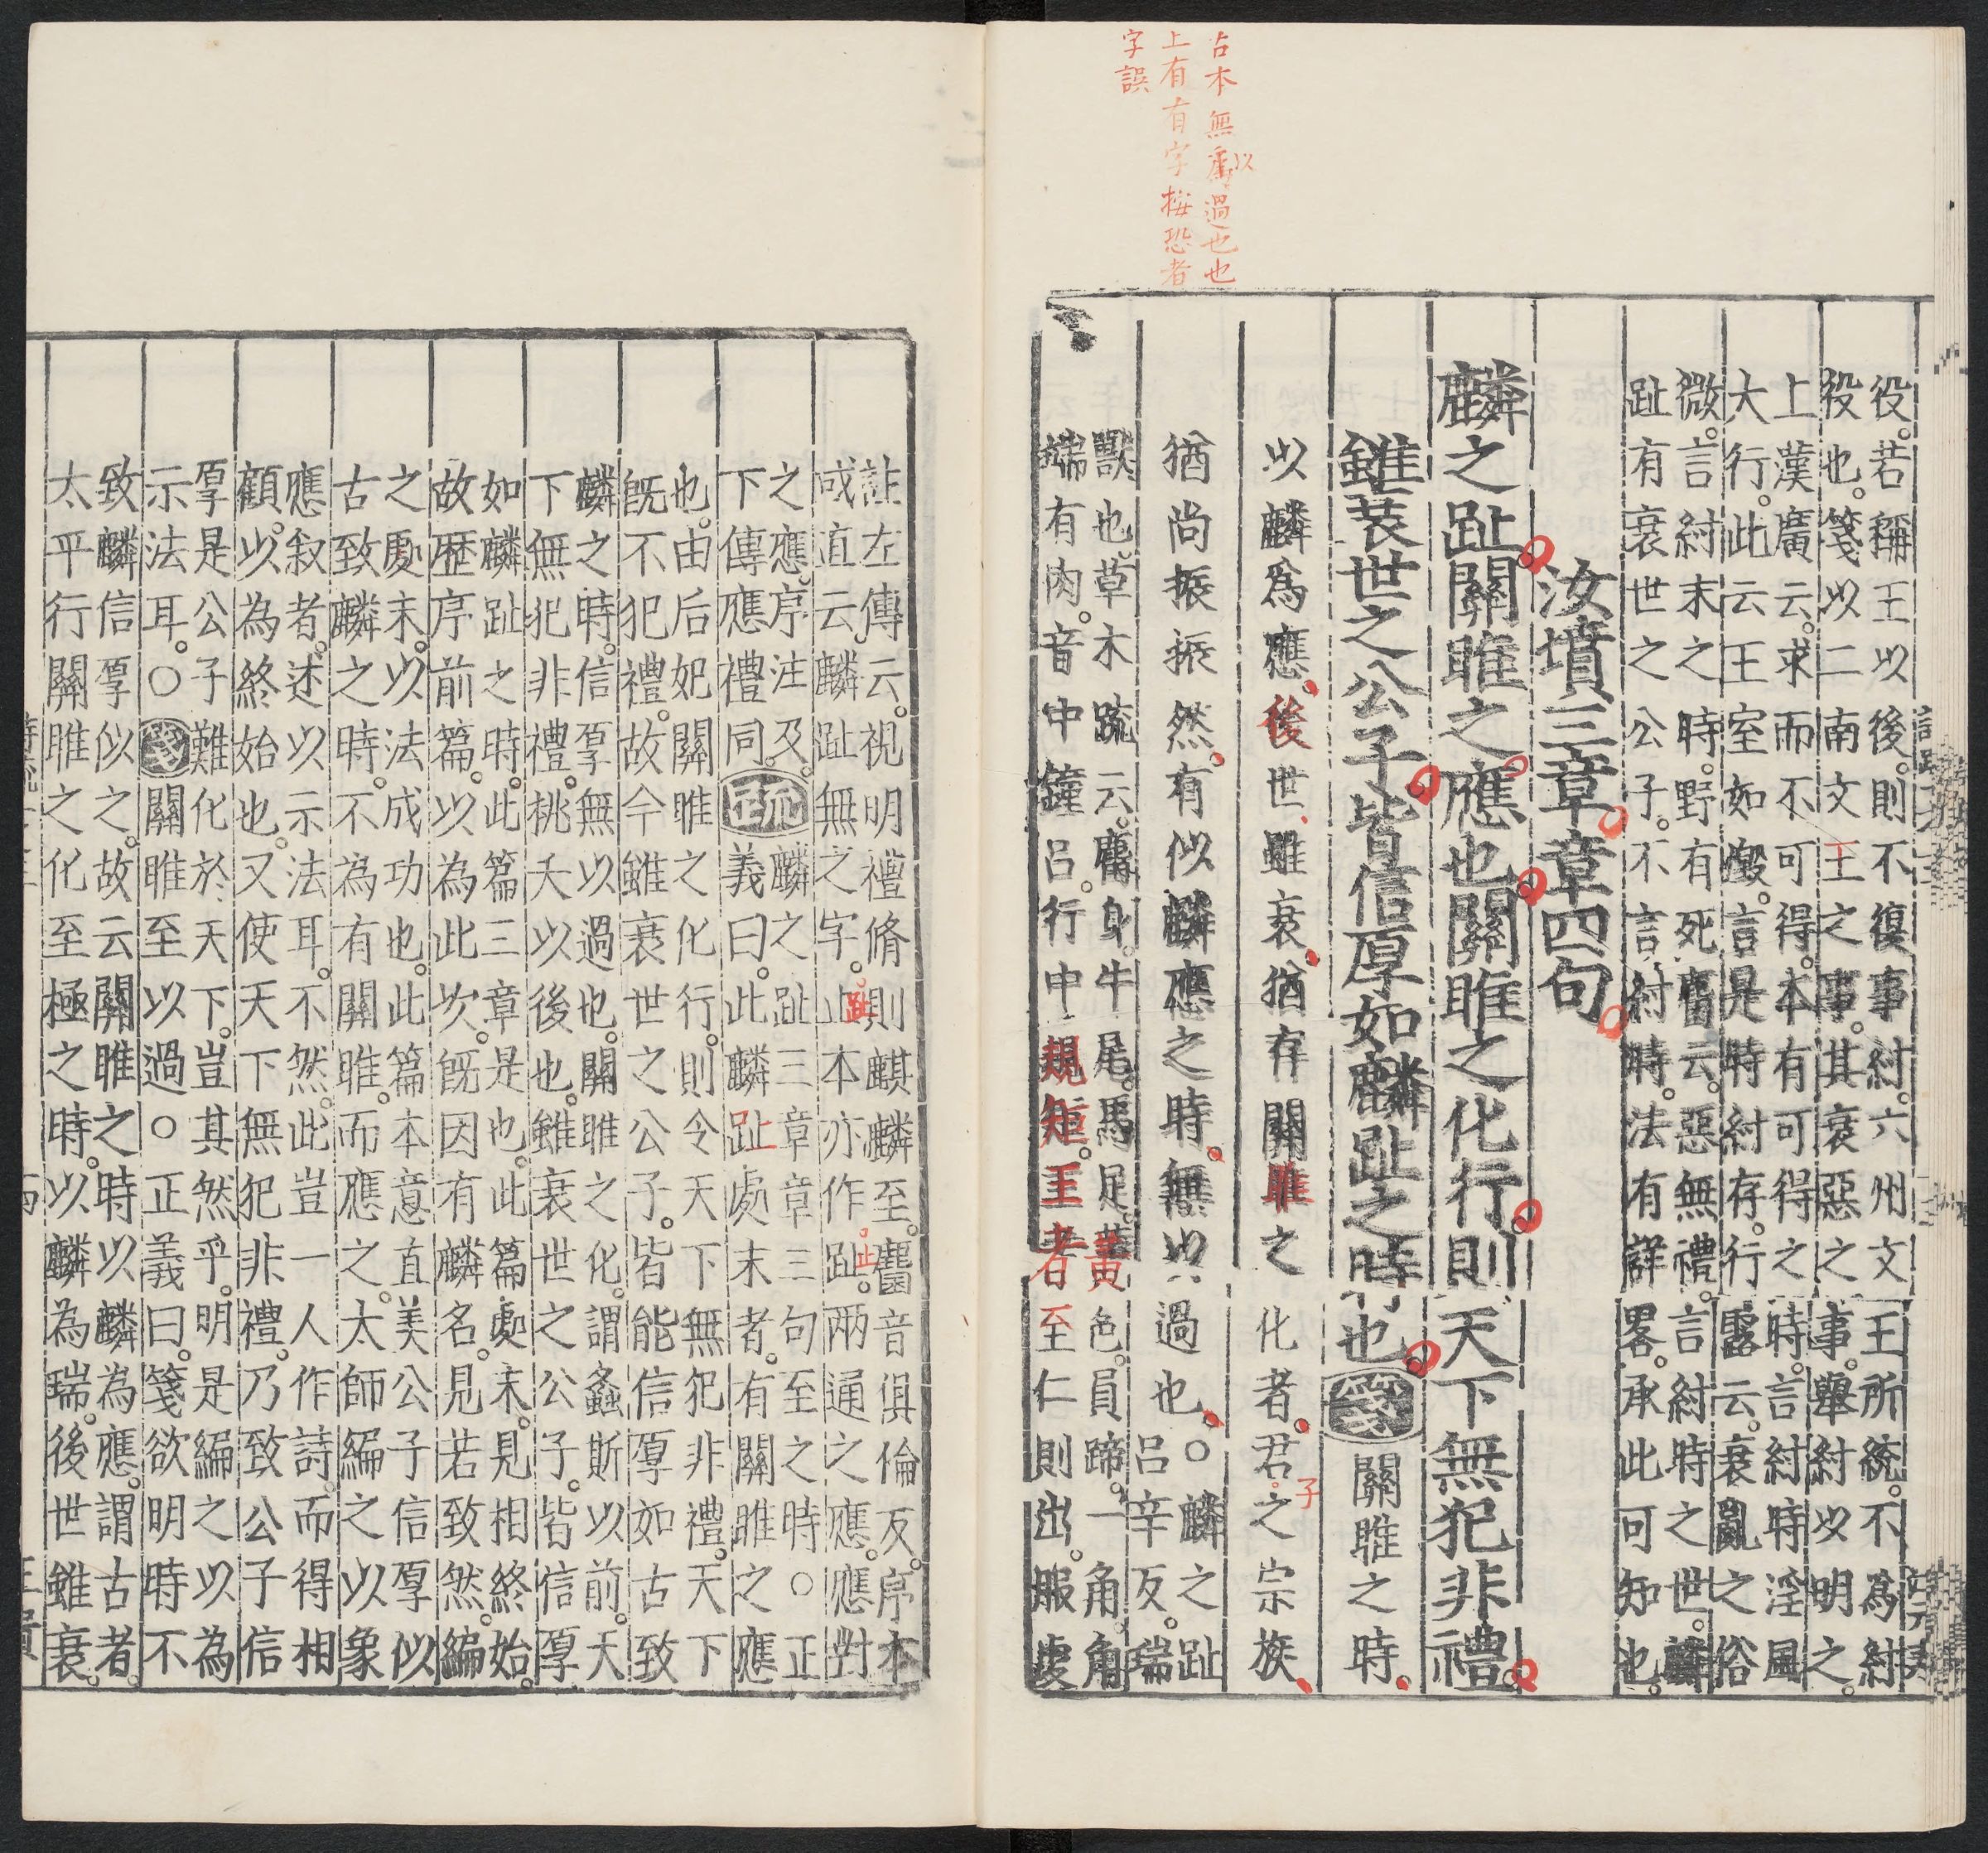 古本無以過也也
上有有字按恐者
字誤
役。若稱王以後。則不復事紂。六州文王所統。不爲紂
役也。箋以二南文王之事。其衰惡之事。舉紂以明之。
上漢廣云。求而不可得。本有可得之時。言紂時淫風
大行。此云王室如燬。言是時紂存。行露云。衰亂之俗
微。言紂末之時。野有死麕云。惡無禮。言紂時之世。麟
趾有衰世之公子。不言紂時。法有詳畧。承此可知也。
汝墳三章章四句
麟之趾關雎之應也關雎之化行則天下無犯非禮
雖衰世之公子皆信厚如麟趾之時也箋關雎之時
以麟爲應後世雖衰猶存關雎之化者君子之宗族
猶尚振振然有似麟應之時無以過也○麟之趾
呂辛反。瑞
獸也。草木疏云。麕身。牛尾。馬足。黃色。員蹄。一角。角
端有肉。音中鐘呂。行中規矩。王者至仁則出。服虔
註左傳云。視明禮脩則麒麟至。麕音俱倫反。序本
或直云麟趾無之字。止本亦作趾。兩通之應。應對
之應。序注及疏麟之趾三章章三句至之時○正
下傳應禮同。正義曰。此麟趾處末者。有關雎之應
也。由后妃關雎之化行。則令天下無犯非禮。天下
既不犯禮。故今雖衰世之公子。皆能信厚如古致
麟之時。信厚無以過也。關雎之化。謂螽斯以前。天
下無犯非禮。桃夭以後也。雖衰世之公子。皆信厚
如麟趾之時。此篇三章是也。此篇處末。見相終始。
故歷序前篇。以為此次。既因有麟名。見若致然。編
之處末。以法成功也。此篇本意直美公子信厚似
古致麟之時。不為有關雎。而應之。太師編之以象
應。叙者。述以示法耳。不然。此豈一人作詩。而得相
顧。以為終始也。又使天下無犯非禮。乃致公子信
厚。是公子難化於天下。豈其然乎。明是編之以為
示法耳。○箋關雎至以過○正義曰。箋欲明時不
致麟。信厚似之。故云關雎之時以麟為應。謂古者。
太平行關雎之化至極之時。以麟為瑞。後世雖衰。